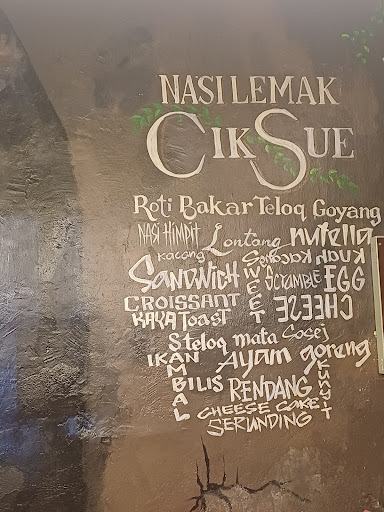 NASI LEMAK
CIK SUE
Roti Bakar Teloq Goyang
NASI HIMPIT Lontang nutella
kacang Kuah kacang
SANDWICH SWEET SCRAMBLE EGG
CROISSANT CHEESE
KAYA Toast
Steloq mata Sosej
IKAN Ayam goreng
BILIS RENDANG
SAMBAL
CHEESE CAKE
SERUNDING